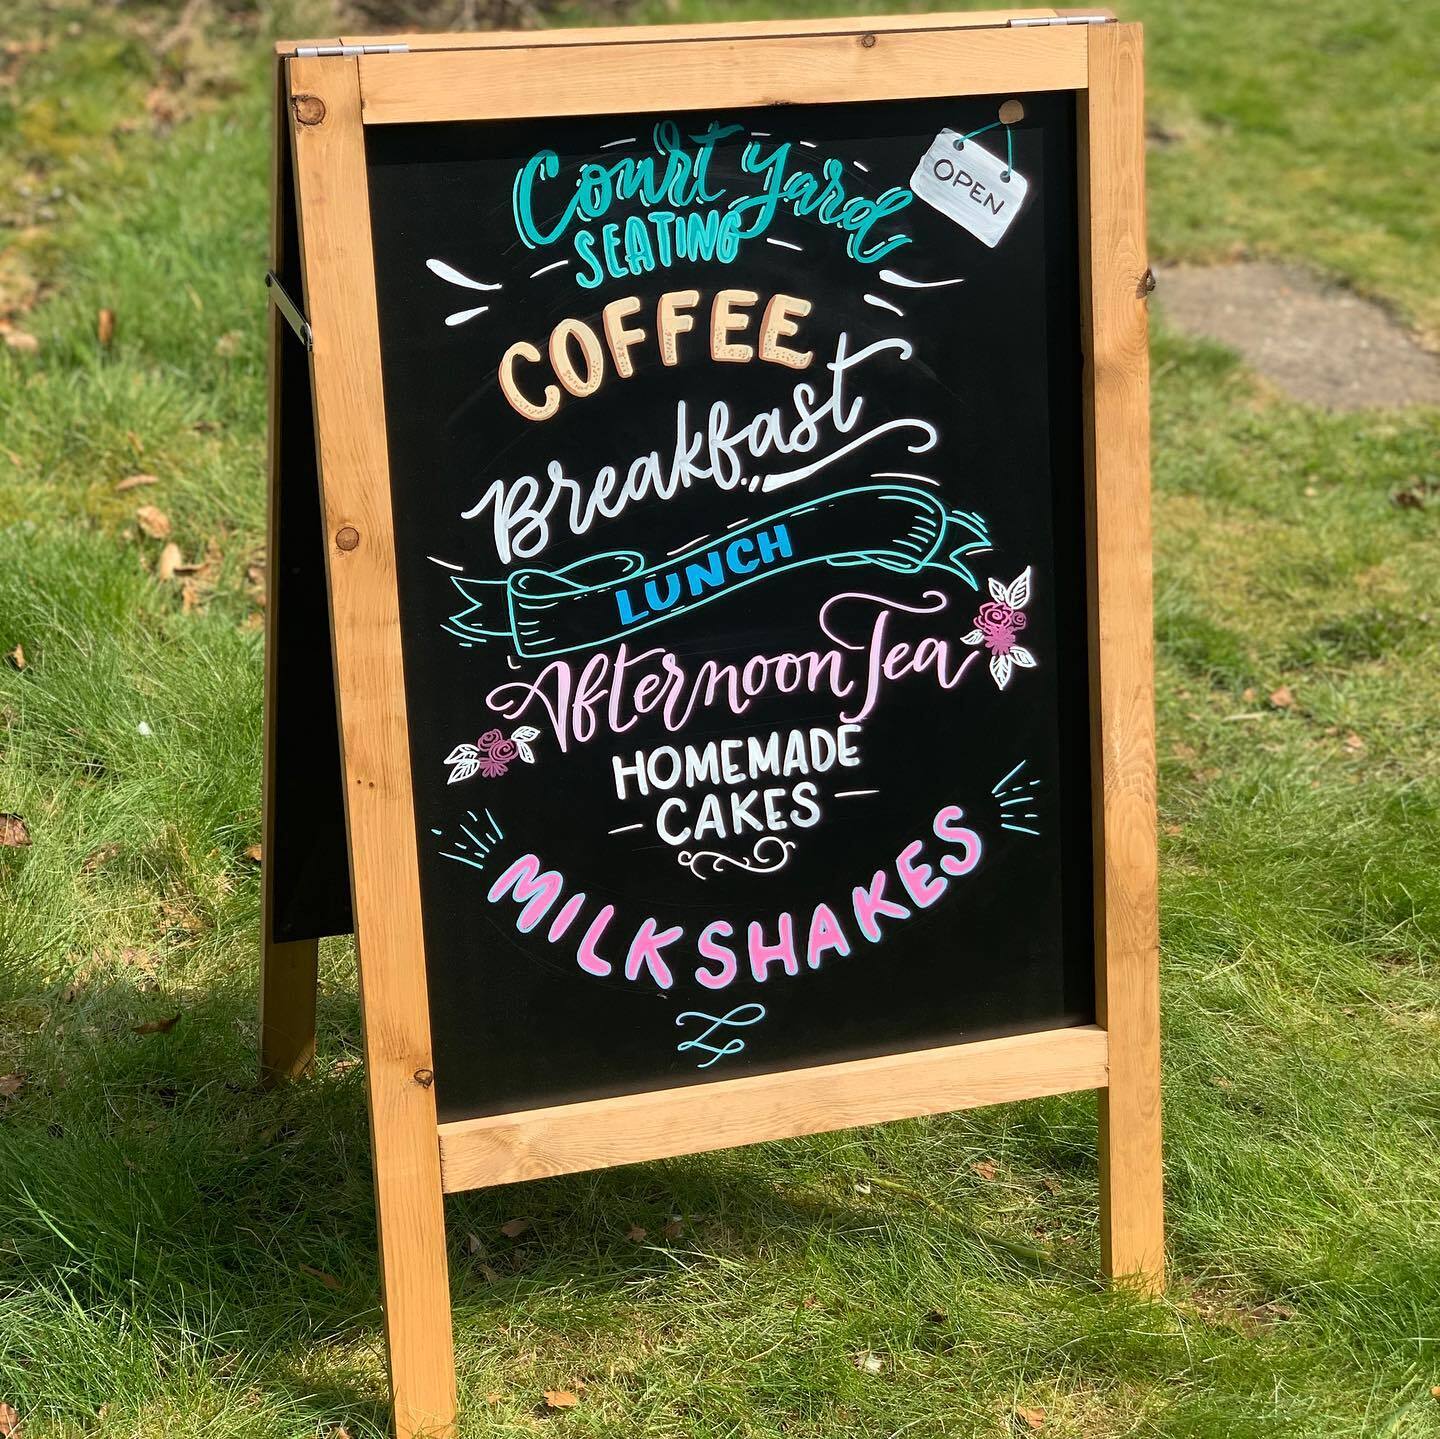 Court Yard
OPEN
SEATING
COFFEE
Breakfast
LUNCH
Afternoon Tea
HOMEMADE
CAKES
MILKSHAKES